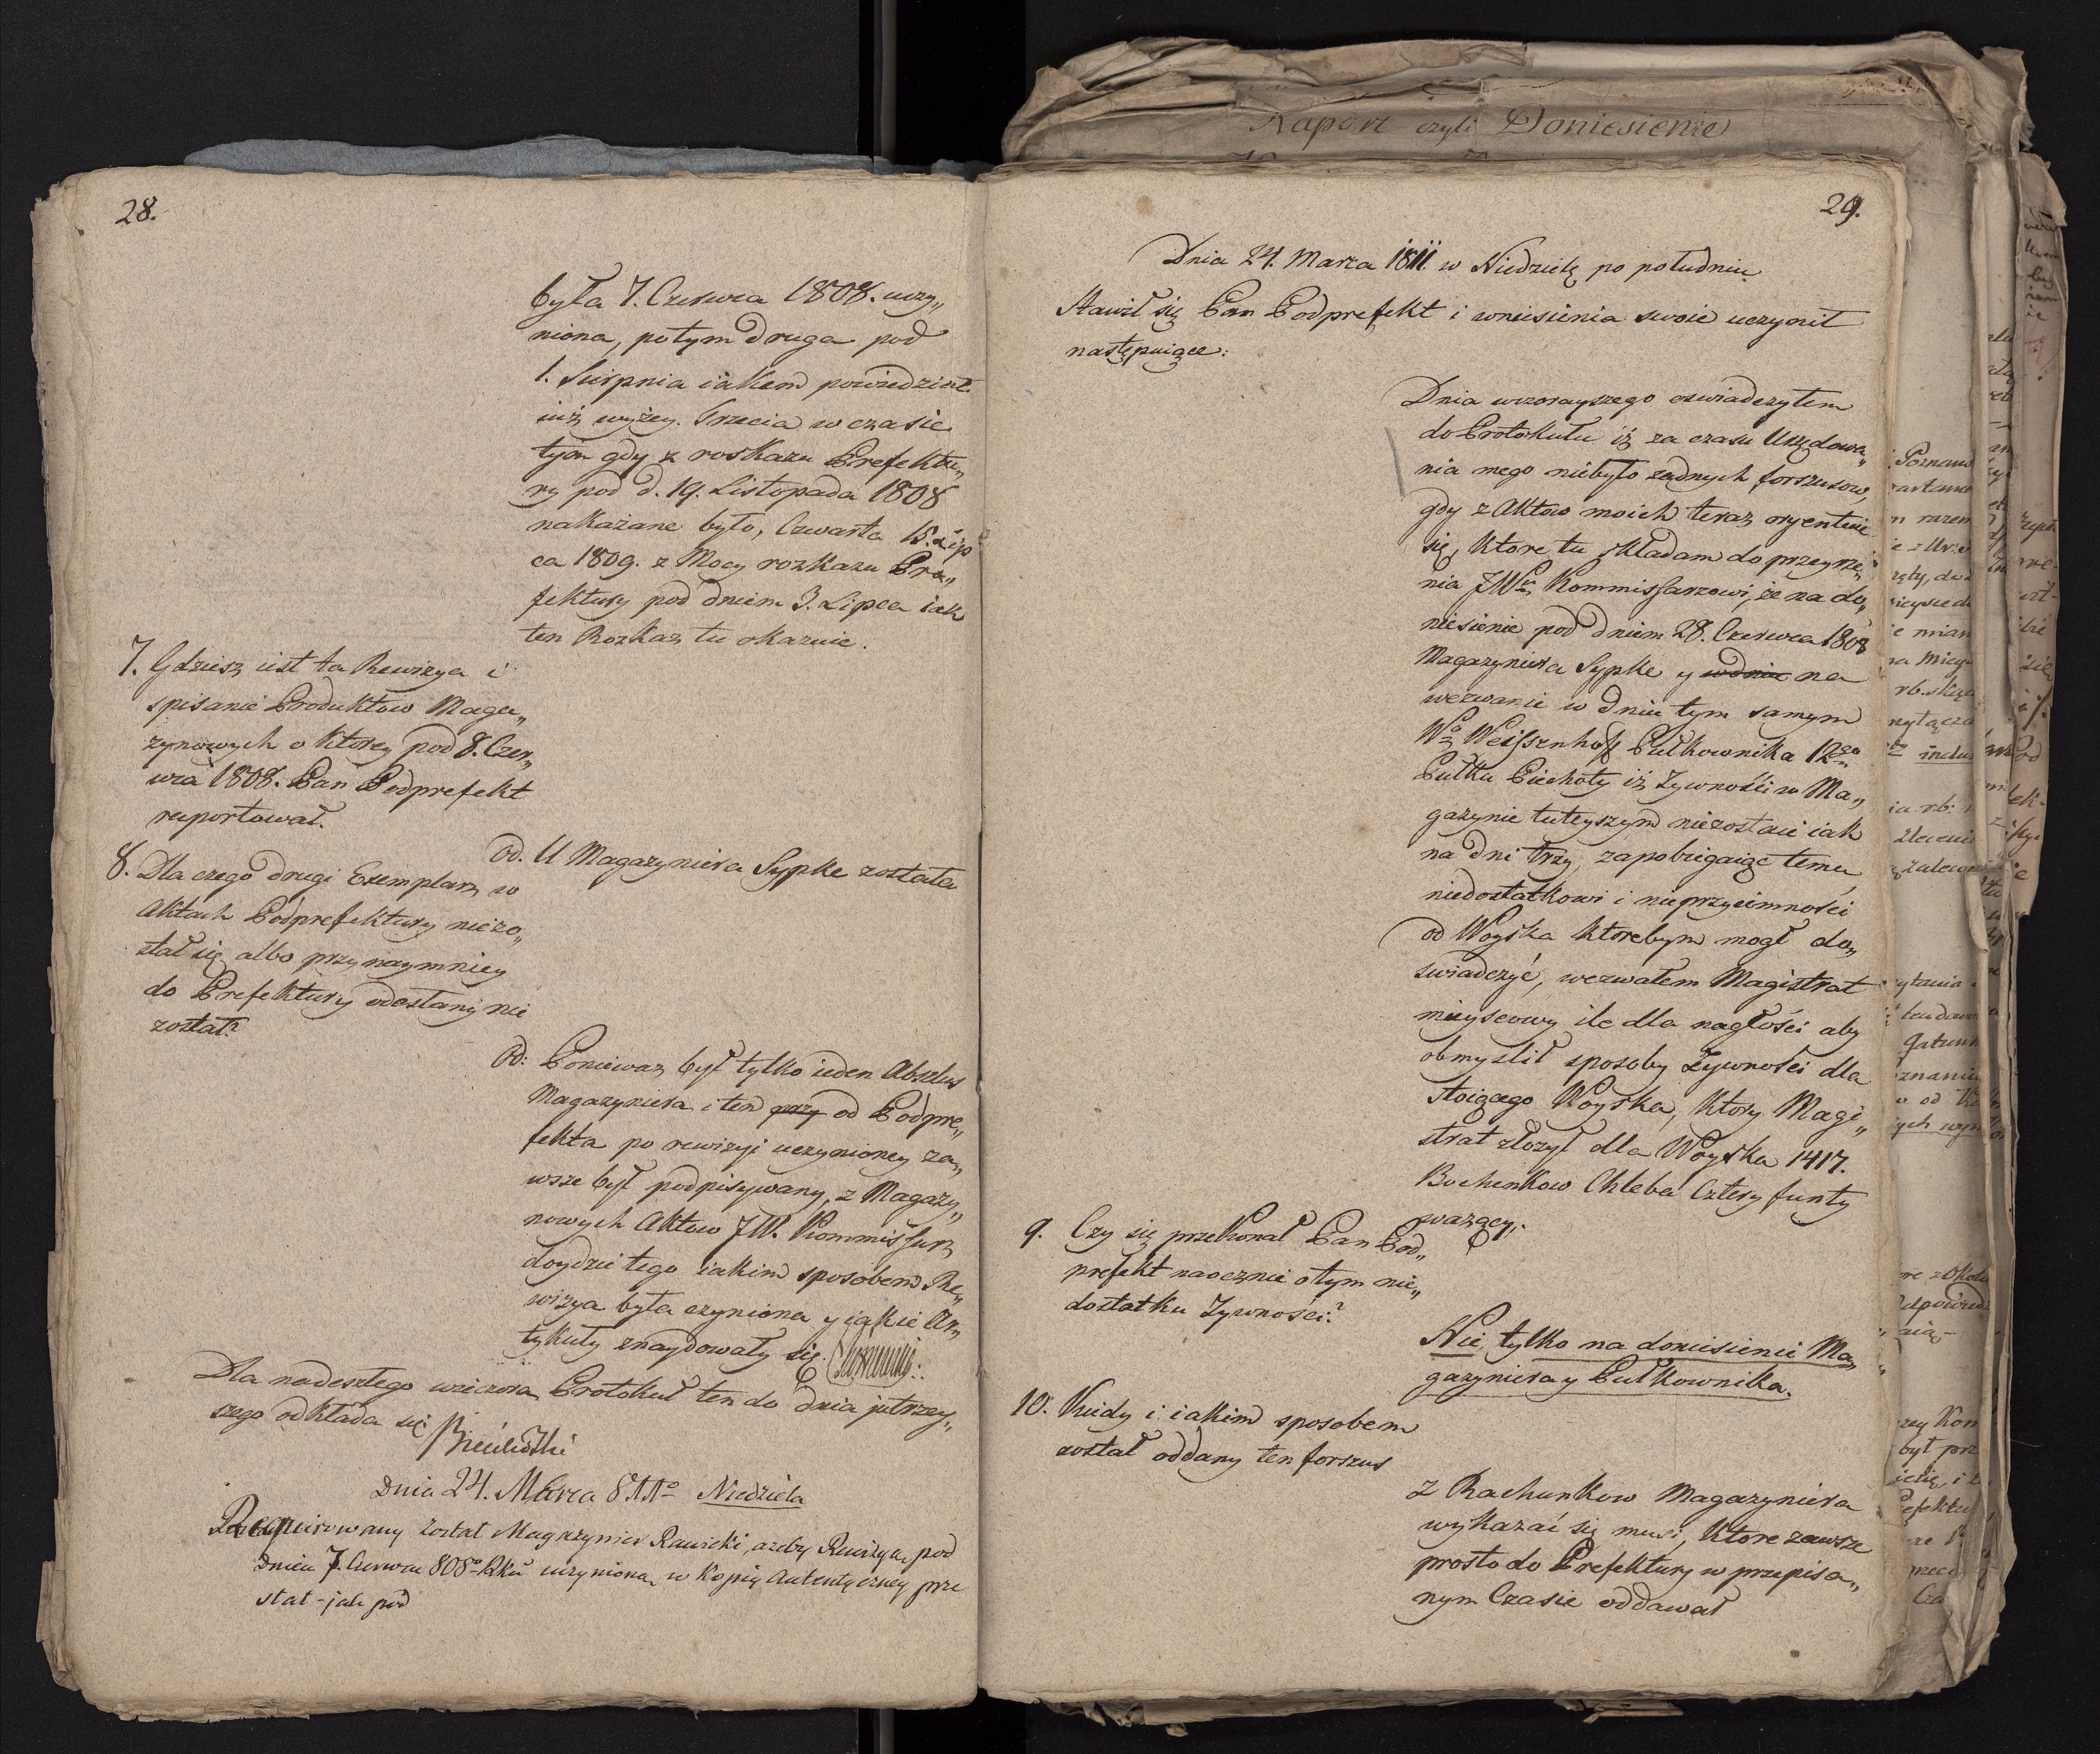 28.
była 7. Czerwca 1808. uczy„
niona, potym druga pod
1. Sierpnia iakem powiedział
iuż wyżey. Trzecia w czasie
tym gdy z roskazu Prefektu„
ry pod d. 19. Listopada 1808
nakazane było, Czwarta 15. Lip
ca 1809. z Mocy rozkazu Pre„
fektury pod dniem 3. Lipca iak
ten Rozkaz tu okazuie.
7. Gdzież iest ta Rewizya i
spisanie Produktow Maga„
zynowych o ktorey pod 8. Czer„
wca 1808. Pan Podprefekt
raportował.
od. U Magazyniera Sypke została
8. Dla czego drugi Exemplarz w
Aktach Podprefektury niezo„
stał się albo przynaymniey
do Prefektury odesłany nie
został?
Od: Ponieważ był tylko ieden Abszlus
Magazyniera i ten przy od Podpre„
fekta po rewizyi uczynioney za„
wsze był podpisywany, z Magazy„
nowych Aktow JW. Kommissarz
doydzie tego iakim sposobem Re„
wizya była czyniona y iakie Ar„
tykuły znaydowały się.
Dla nadeszłego wieczora Protokuł ten do dnia jutrzey„
szego odkłada się
Dnia 24. Marca 811º Niedziela
Requirowany został Magazynier Rawicki, azeby Rewizya pod
Dniem 7. Czerwca 808º Rku uczyniona w Kopią Autentyczney prze
stał - jak pod
Raport czyli Doniesienie
29.
Dnia 24. Marca 1811. w Niedzielę po południu
Stawił się Pan Podprefekt i wniesienia swoie uczynił
następuiące:
Dnia wczorayszego oswiadczyłem
do Protokułu iż za czasu Urzędowa„
nia mego niebyło żadnych forszusow,
gdy z Aktow moich teraz oryentuie
się, ktore tu składam do przeyrze„
nia JW. Kommissarzowi, że na do„
niesienie pod dniem 28. Czerwca 1808
Magazyniera Sypke y w dniu na
wezwanie w dniu tym samym
Wo Weissenhoff Pułkownika 12go
Pułku Piechoty iż Zywności w Ma„
gazynie tuteyszym niezostaie iak
na dni trzy, zapobiegaiąc temu
niedostatkowi i nieprzyiemności
od Woyska ktorebym mogł do„
swiadczyć, wezwałem Magistrat
mieyscowy ile dla nagłości aby
obmyślił sposoby Zywności dla
stoiącego Woyska, ktory Magi„
strat złożył dla Woyska 1417.
Bochenkow Chleba Cztery funty
ważący.
9. Czy się przekonał Pan Pod„
prefekt naocznie o tym nie„
dostatku Zywności?
Nie, tylko na doniesienie Ma„
gazyniera y Pułkownika.
10. Kiedy i iakim sposobem
został oddany ten forszus
Z Rachunkow Magazyniera
wykazać się musi, ktore zawsze
prosto do Prefektury w przepisa„
nym Czasie oddawał